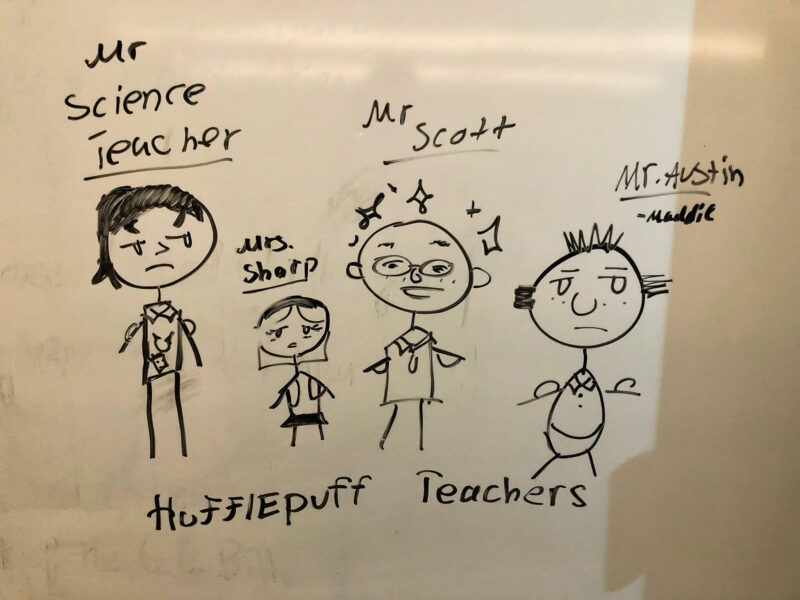 Mr
Science
Teacher
Mrs.
Sharp
Mr
Scott
Mr. Austin
-Maddie
HUFFlEpuff Teachers